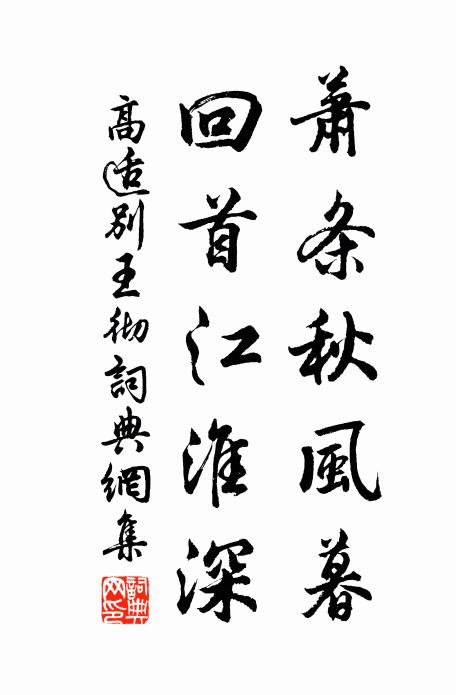 萧条秋風暮
回首江淮深
高适别王彻詞典網集
詞典
网印